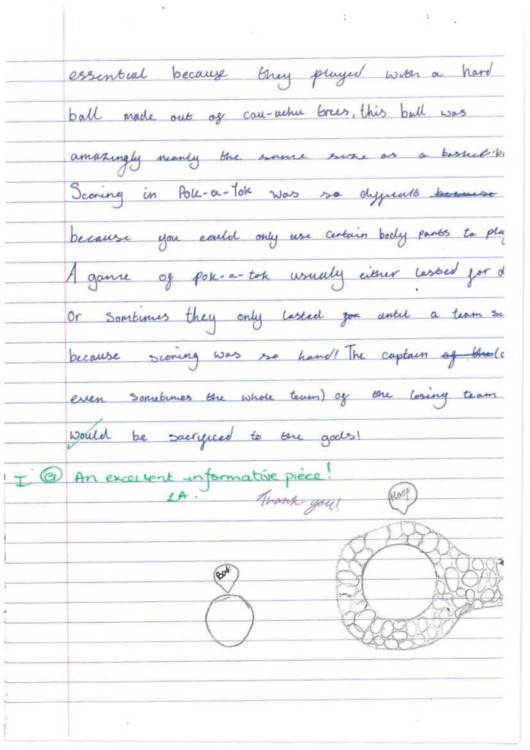 essential because they played with a hard
ball made out of cau-uchu trees, this ball was
amazingly nearly the same size as a basket-b
Scoring in Pok-a-Tok was so difficult because
because you could only use certain body parts to play
A game of pok-a-tok usualy either lasted for d
Or Somtimes they only lasted for until a team sc
because scoring was so hard! The captain of the (o
even Sometimes the whole team) of the losing team
would be sacrificed to the gods!
I An excellent informative piece!
Thank you!
Hoop
Ball